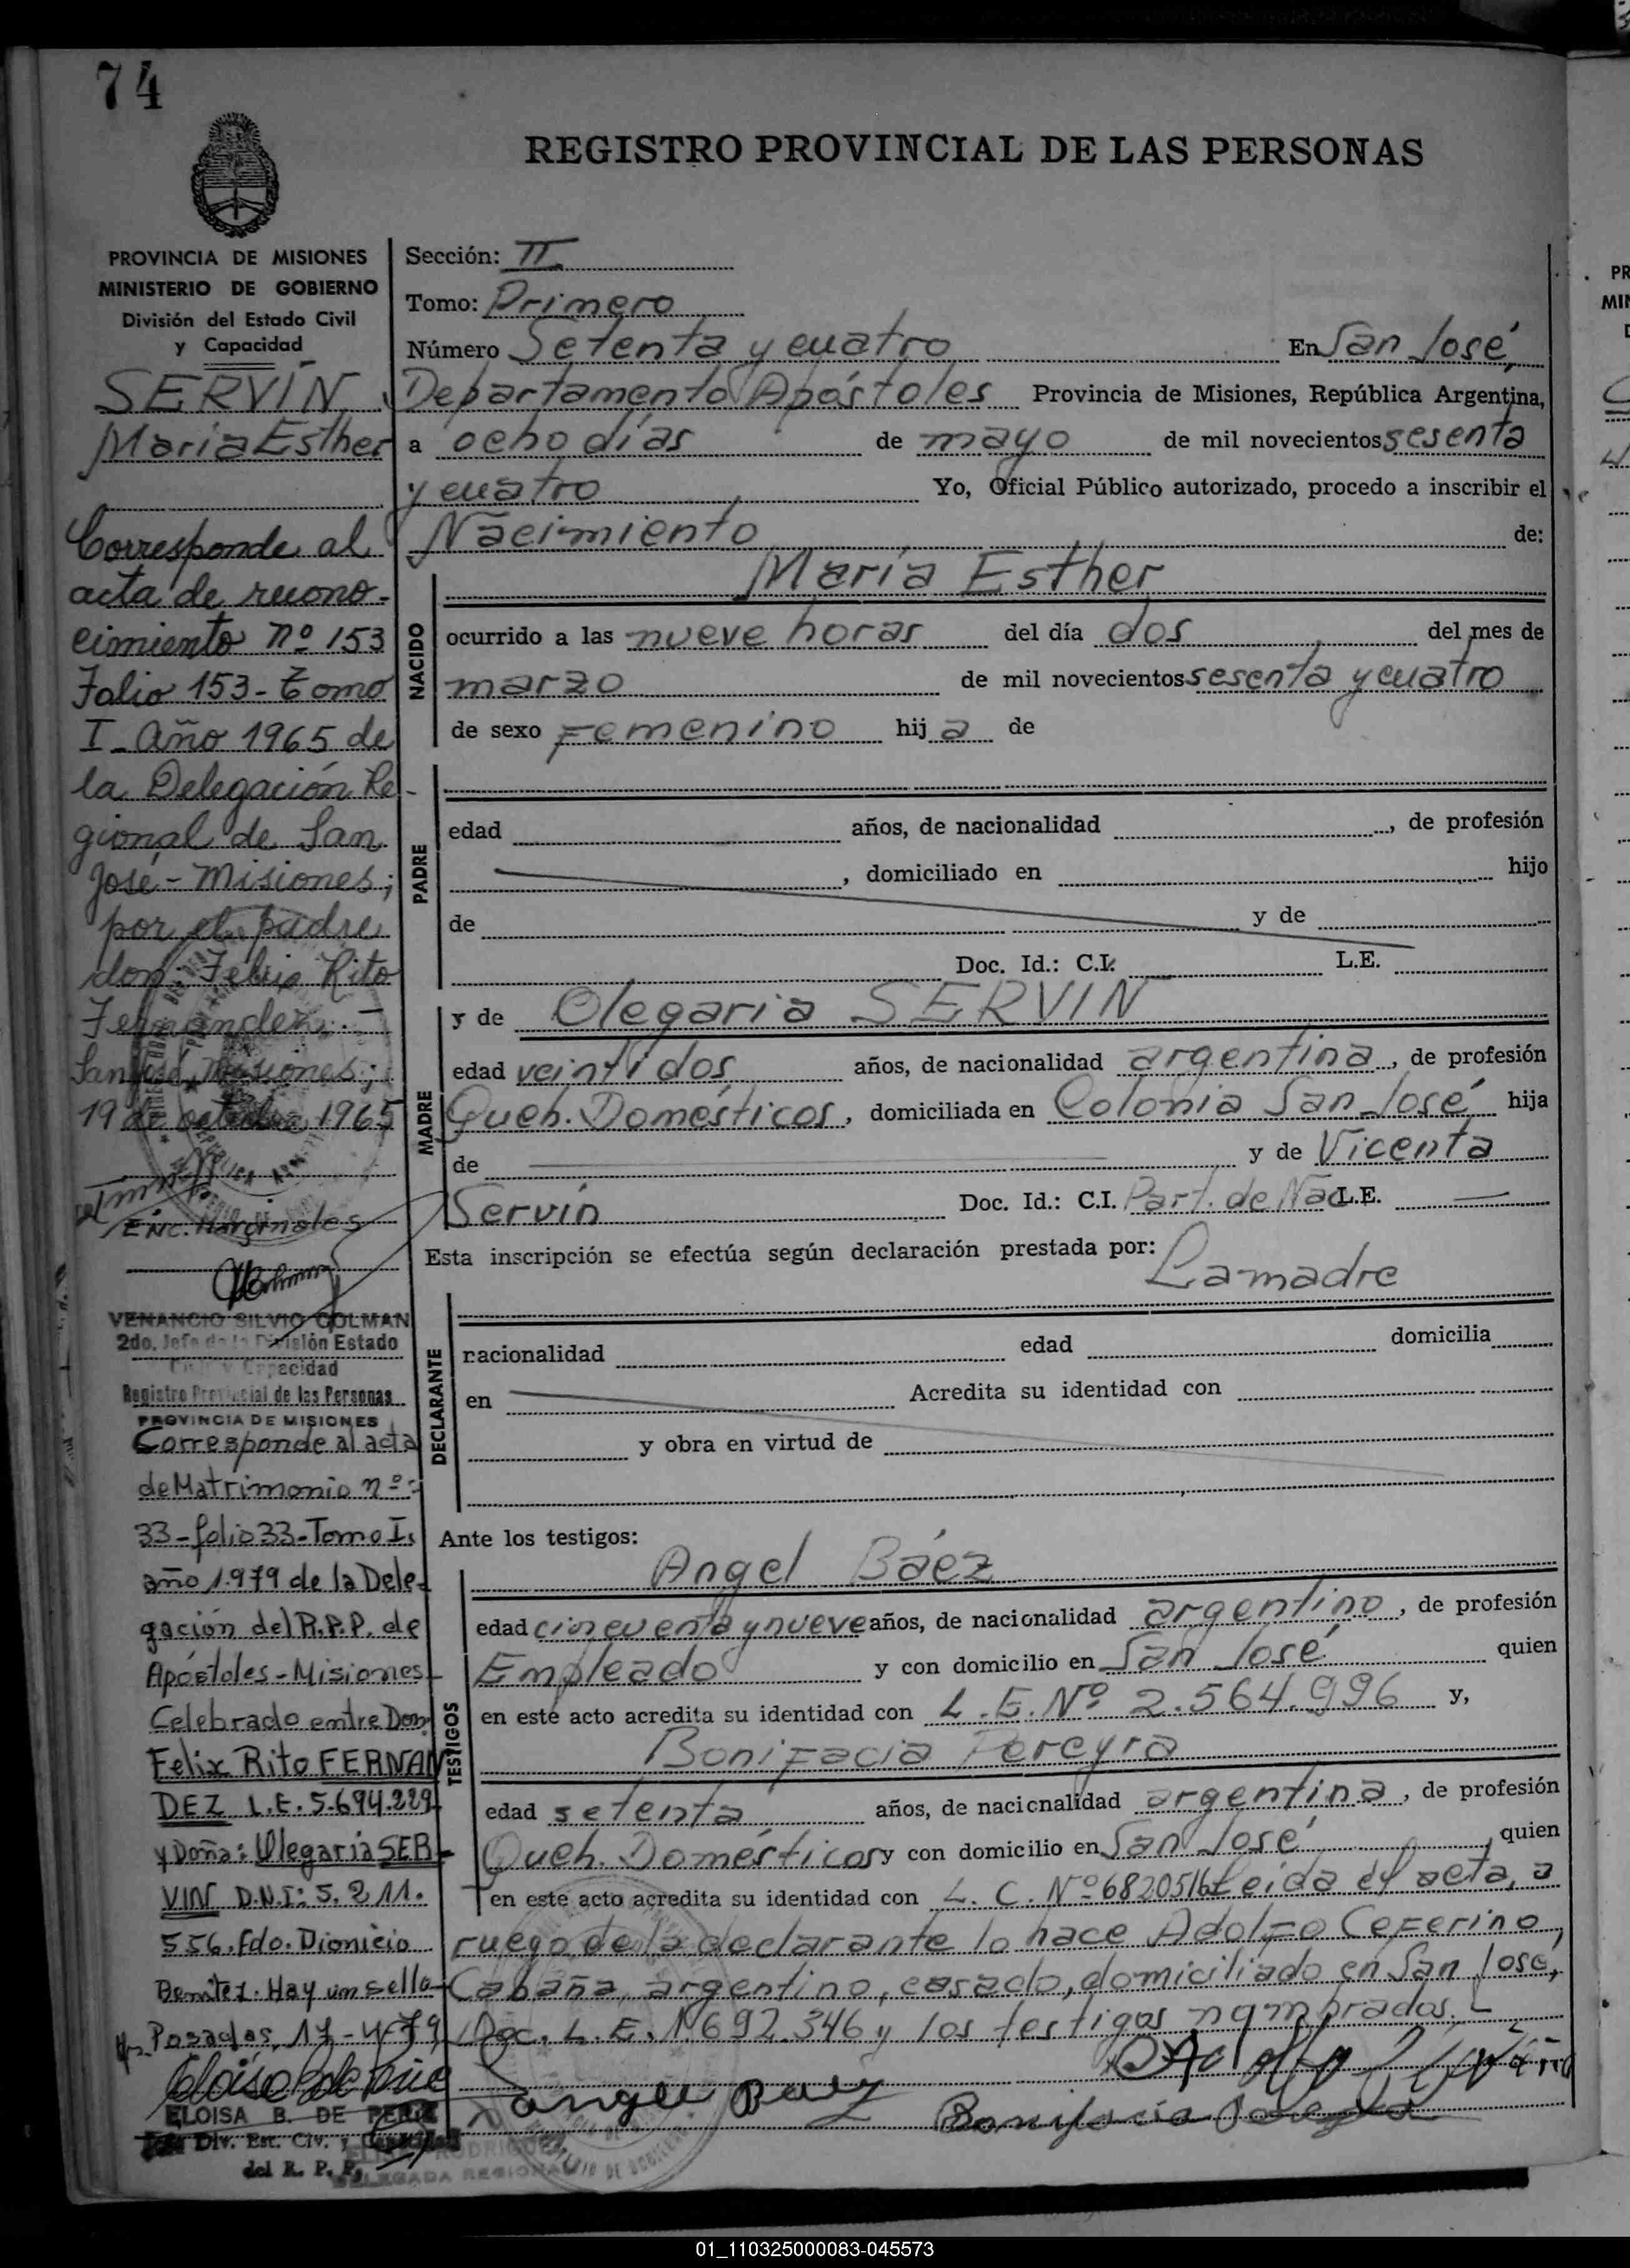 74
REGISTRO PROVINCIAL DE LAS PERSONAS
PROVINCIA DE MISIONES
MINISTERIO DE GOBIERNO
División del Estado Civil
y Capacidad
SERVIN,
Maria Esther
Corresponde al
acta de recono-
cimiento nº 153
Folio 153 - Tomo
I - Año 1965 de
la Delegación Re-
gional de San
José - Misiones;
por el padre
don: Felix Rito
Fernandez.-
San José, Misiones;
19 de octubre 1965
Enc. Marginales
VENANCIO SILVIO COLMAN
2do. Jefe de la División Estado
Civil y Capacidad
Registro Provincial de las Personas
PROVINCIA DE MISIONES
Corresponde al acta
de Matrimonio nº:
33-folio 33-Tomo I.
año 1.979 de la Dele-
gación del R.P.P. de
Apóstoles-Misiones-
Celebrado entre Don:
Felix Rito FERNAN
DEZ L.E. 5.694.229
y Doña: Olegaria SER-
VIN D.N.I: 5.211.
556. Fdo. Dionicio
Benitez. Hay un sello
Posadas, 17-4-79
ELOISA B. DE
Div. Est. Civ. y Capacidad
del R. P. P.
Sección: II
Tomo: Primero
Número Setenta y cuatro En San José,
Departamento Apóstoles Provincia de Misiones, República Argentina,
a ocho días de mayo de mil novecientos sesenta
y cuatro Yo, Oficial Público autorizado, procedo a inscribir el
Nacimiento de:
María Esther
NACIDO
ocurrido a las nueve horas del día dos del mes de
marzo de mil novecientos sesenta y cuatro
de sexo Femenino hij a de
PADRE
edad años, de nacionalidad , de profesión
, domiciliado en hijo
de y de
Doc. Id.: C.I. L.E.
MADRE
y de Olegaria SERVIN
edad veintidos años, de nacionalidad argentina, de profesión
Queh. Domésticos, domiciliada en Colonia San José hija
de y de Vicenta
Servín Doc. Id.: C.I. Part. de Nac L.E.
Esta inscripción se efectúa según declaración prestada por:
La madre
DECLARANTE
nacionalidad edad domicilia
en Acredita su identidad con
y obra en virtud de
Ante los testigos:
TESTIGOS
Angel Báez
edad cincuenta y nueve años, de nacionalidad argentino, de profesión
Empleado y con domicilio en San José quien
en este acto acredita su identidad con L.E. Nº 2.564.996 y,
Bonifacia Pereyra
edad setenta años, de nacionalidad argentina, de profesión
Queh. Domésticos y con domicilio en San José, quien
en este acto acredita su identidad con L. C. Nº 6820516 Leida el acta, a
ruego de la declarante lo hace Adolfo Ceferino,
Cabaña, argentino, casado, domiciliado en San José,
Doc. L.E. 1692.346 y los testigos nombrados.
Angel Baez
Bonifacia Pereyra
01_110325000083-045573